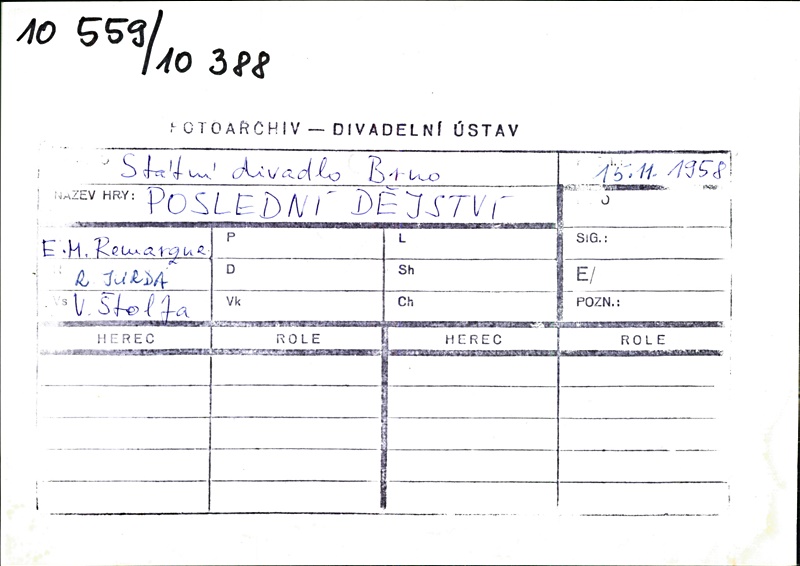 10 559/10 388
FOTOARCHIV — DIVADELNÍ ÚSTAV
Státní divadlo Brno 15.11.1958
NÁZEV HRY: POSLEDNÍ DĚJSTVÍ
E.M. Remarque P L SIG.:
R JURDA D Sh E/
Vs V. Štolfa Vk Ch POZN.:
HEREC ROLE HEREC ROLE